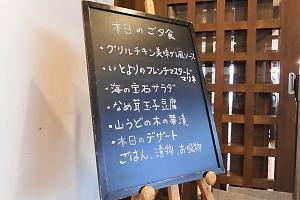 本日のご夕食
・グリルチキン美味ダレ風ソース
・いとよりのフレンチマスタードマリネ
・海の宝石サラダ
・なめ茸玉子豆腐
・山うどの木の葉漬
・本日のデザート
ごはん、漬物、お吸物